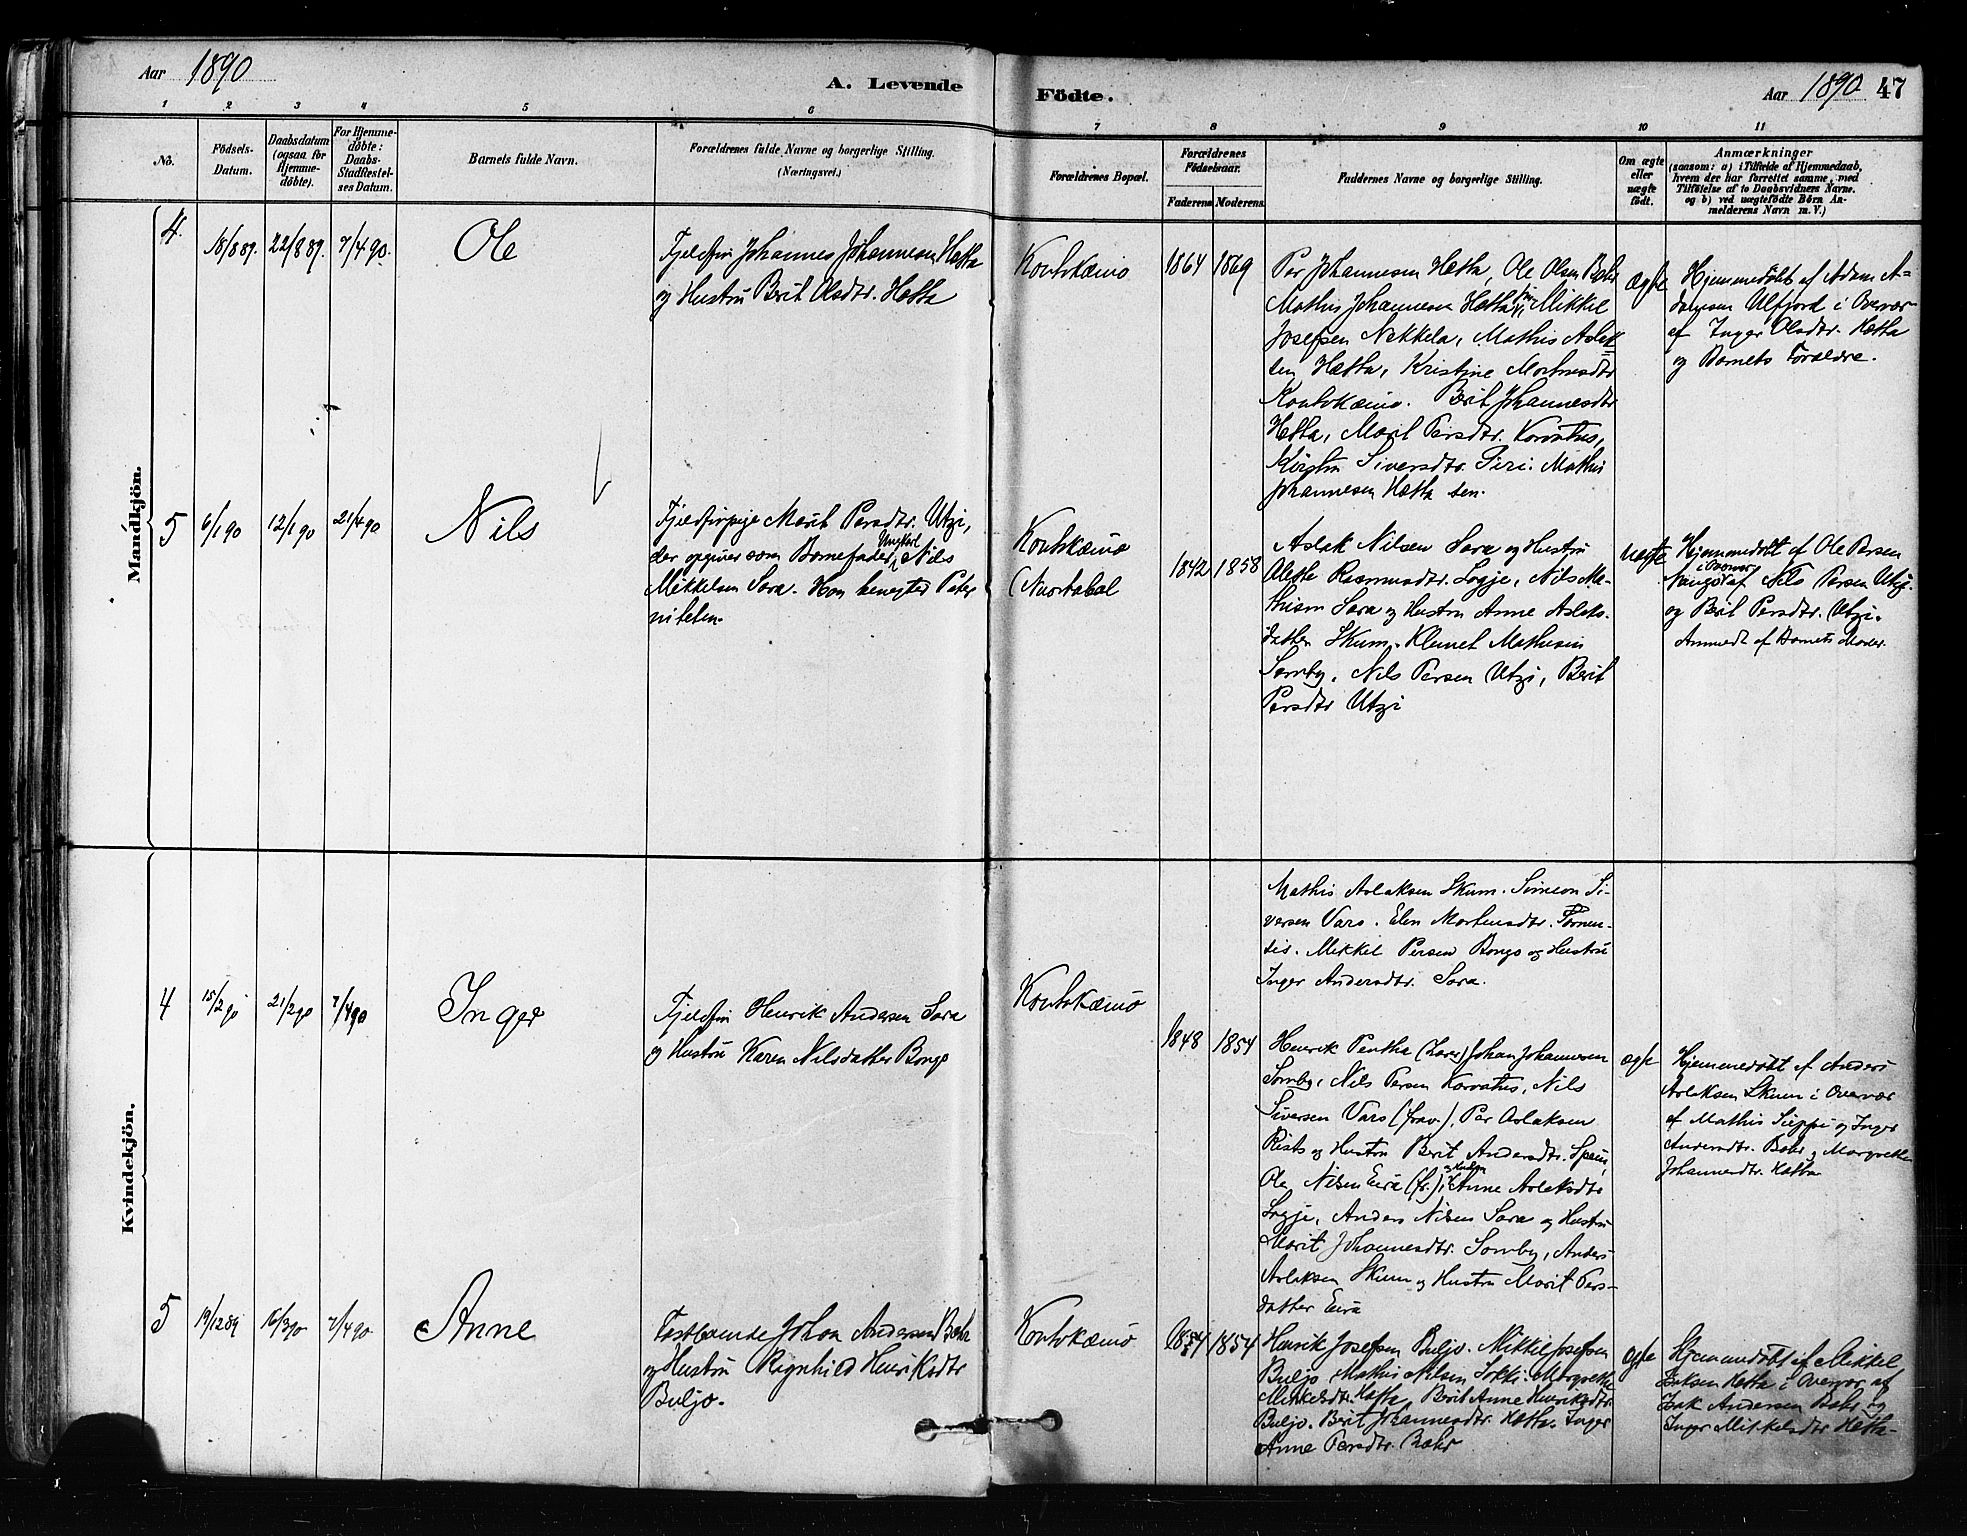 Aar 1890
A. Levende
Födte.
Aar 1890 47
1 2 3 4 5 6 7 8 9 10 11
No.
Födsels-
Datum.
Daabsdatum
(ogsaa for
Hjemme-
döbte).
For Hjemme-
döbte:
Daabs-
Stadfestel-
ses Datum.
Barnets fulde Navn.
Forældrenes fulde Navne og borgerlige Stilling.
(Næringsvei.)
Forældrenes Bopæl.
Forældrenes
Födselsaar.
Faderens Moderens
Faddernes Navne og borgerlige Stilling.
Om ægte
eller
uægte
födt.
Anmærkninger
(saasom: a) i Tilfælde af Hjemmedaab,
hvem der har forrettet samme, med
Tilföielse af to Daabsvidners Navne.
og b) ved uægtefödte Börn An-
melderens Navn m. V.)
Mandkjön.
4
18/8 89.
22/8 89.
7/4 90.
Ole
Fjeldfin Johannes Johannesen Hætta
og Hustru Berit Olsdtr. Hætta
Koutokæino
1864
1869
Per Johannesen Hætta, Ole Olsen Bæhr
Mathis Johannesen Hætta jun, Mikkel
Josefsen Nekkela, Mathis Aslak-
sen Hætta, Kristine Mortensdtr
Koutokæino. Berit Johannesdtr
Hætta, Marit Persdtr. Korvatus,
Kirsten Siversdtr. Siri. Mathis
Johannesen Hætta sen.
ægte
Hjemmedöbt af Adam A-
damsen Ulfjord i Overvær
af Inger Olsdtr. Hætta
og Barnets Forældre.
5
6/1 90
12/1 90
21/4 90
Nils
Fjeldfinpige Marit Persdtr. Utzi,
der opgiver som Barnefader Ungkarl Nils
Mikkelsen Sara. Han benegted Pater-
niteten.
Koutokæino
(Nuortabal
1842
1858
Aslak Nilsen Sara og Hustru
Alette Rasmusdtr. Logje, Nils Ma-
thisen Sara og Hustru Anne Aslaks-
datter Skum. Klemet Mathisen
Somby, Nils Persen Utzi, Berit
Persdtr Utzi
uægte
Hjemmedöbt af Ole Persen
i Overvær af Nils Persen Utzi
og Berit Persdtr. Utzi.
Anmeldt af Barnets Moder.
Kvindekjön.
4
15/2 90
21/2 90
7/4 90
Inger
Fjeldfin Henrik Andersen Sara
og Hustru Karen Nilsdatter Bongo
Koutokæino
1848
1854
Mathis Aslaksen Skum. Simeon Si-
versen Vars. Elen Mortensdtr. Tornen-
sis. Mikkel Persen Bongo og Hustru
Inger Andersdtr. Sara.
Henrik Pentha (Lars) Johan Johannesen
Somby, Nils Persen Korvatus, Nils
Siversen Vars (frav.), Per Aslaksen
Rists og Hustru Berit Andersdtr. Spein,
Ole Nilsen Eira (fr.) og Hustru Anne Aslaksdtr
Logje, Anders Nilsen Sara og Hustru
Marit Johannesdtr. Somby, Anders
Aslaksen Skum og Hustru Marit Pers-
datter Eira
ægte
Hjemmedöbt af Anders
Aslaksen Skum i Overvær
af Mathis Sieppi og Inger
Andersdtr. Bæhr og Margrethe
Johannesdtr. Hætta
5
19/12 89
16/3 90
7/4 90
Anne
Fastboende Johan Andersen Bæhr
og Hustru Ragnhild Henriksdtr
Buljo.
Koutokæino
1854
Henrik Josefsen Buljo. Mikkel Josefsen
Buljo. Mathis Nilsen Sokki. Margrethe
Mikkelsdtr. Hætta, Berit Anne Henriksdtr.
Buljo. Berit Johannesdtr. Hætta. Inger
Anne Persdtr. Bæhr
ægte
Hjemmedöbt af Mikkel
Isaksen Hætta i Overvær af
Isak Andersen Bæhr og
Inger Mikkelsdtr Hætta.